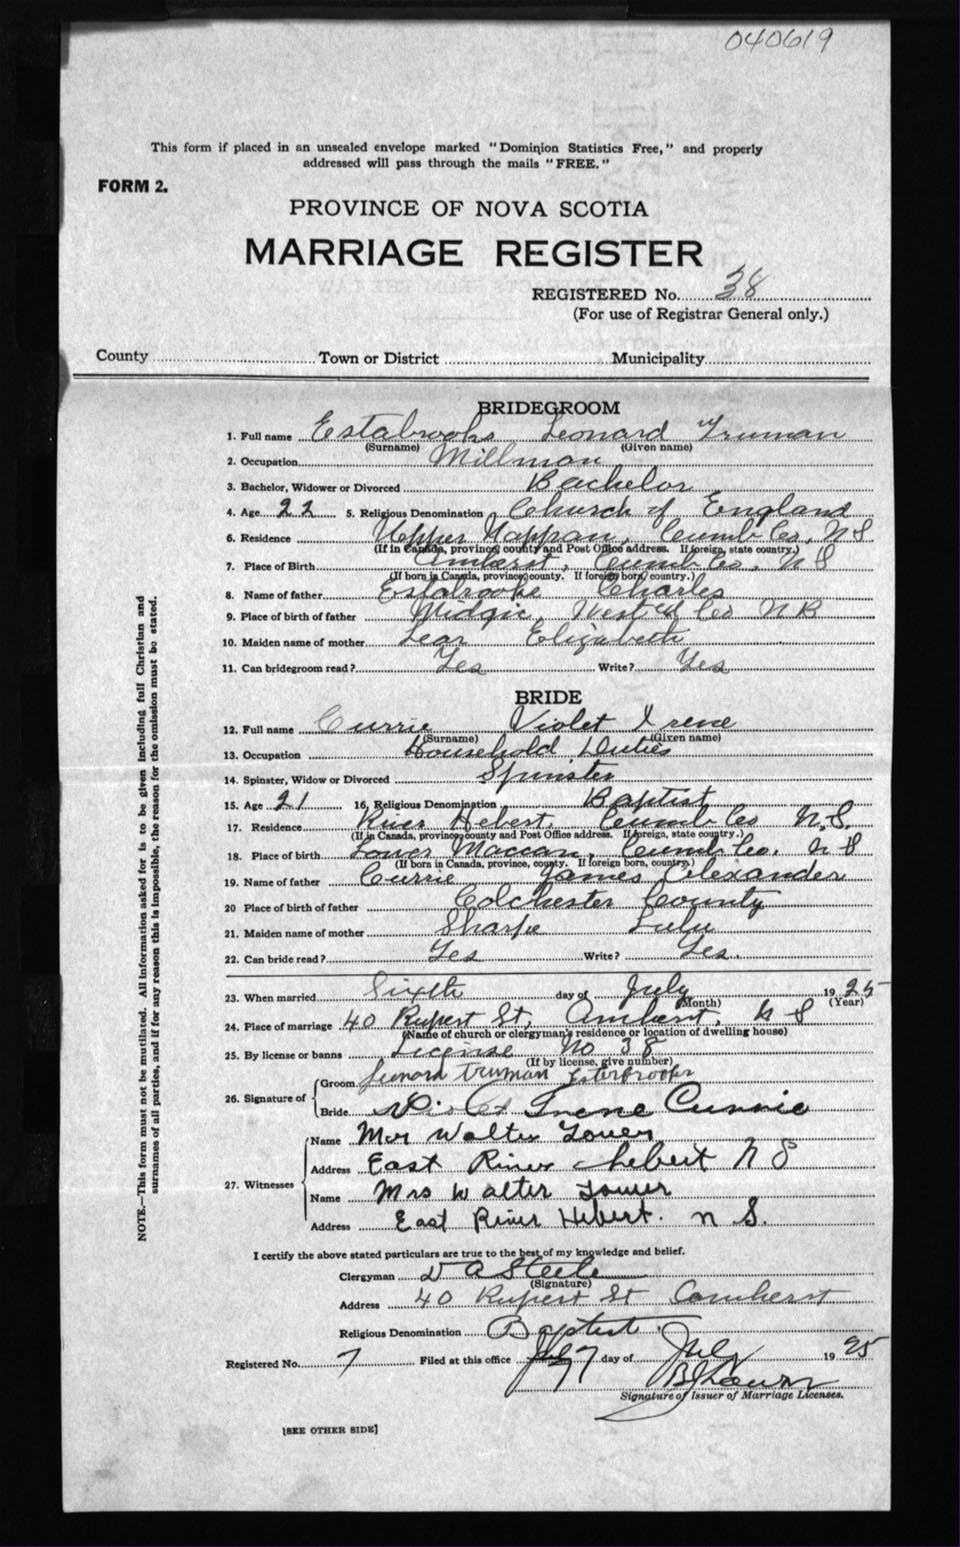 040619
This form if placed in an unsealed envelope marked "Dominion Statistics Free," and properly
addressed will pass through the mails "FREE."
FORM 2.
PROVINCE OF NOVA SCOTIA
MARRIAGE REGISTER
REGISTERED No. 38
(For use of Registrar General only.)
County Town or District Municipality
BRIDEGROOM
1. Full name Estabrooks Leonard Truman
(Surname) (Given name)
2. Occupation Millman
3. Bachelor, Widower or Divorced Bachelor
4. Age 22 5. Religious Denomination Church of England
6. Residence Upper Nappan, Cumb Co, N S
(If in Canada, province, county and Post Office address. If foreign, state country.)
7. Place of Birth Amherst, Cumb Co. N S
(If born in Canada, province, county. If foreign born, country.)
8. Name of father Estabrooks Charles
9. Place of birth of father Midgic, West'd Co N B
10. Maiden name of mother Lear Elizabeth
11. Can bridegroom read? Yes Write? Yes
BRIDE
12. Full name Currie Violet Irene
(Surname) (Given name)
13. Occupation Household Duties
14. Spinster, Widow or Divorced Spinster
15. Age 21 16. Religious Denomination Baptist
17. Residence River Hebert, Cumb Co N.S.
(If in Canada, province, county and Post Office address. If foreign, state country.)
18. Place of birth Lower Maccan, Cumb Co. N S
(If born in Canada, province, county. If foreign born, country.)
19. Name of father Currie James Alexander
20 Place of birth of father Colchester County
21. Maiden name of mother Sharpe Lulu
22. Can bride read? Yes Write? Yes.
23. When married Sixth day of July 1925
(Month) (Year)
24. Place of marriage 40 Rupert St, Amherst, N S
(Name of church or clergyman's residence or location of dwelling house)
25. By license or banns License No 38
(If by license, give number)
26. Signature of Groom Leonard Truman Esterbrooks
Bride Violet Irene Currie
27. Witnesses Name Mr Walter Tower
Address East River Hebert N S
Name Mrs Walter Tower
Address East River Hebert. N S.
I certify the above stated particulars are true to the best of my knowledge and belief.
Clergyman D A Steele
(Signature)
Address 40 Rupert St Amherst
Religious Denomination Baptist.
Registered No. 7 Filed at this office 7 day of July 1925
Signature of Issuer of Marriage Licenses.
[SEE OTHER SIDE]
NOTE.—This form must not be mutilated. All information asked for is to be given including full Christian and
surnames of all parties, and if for any reason this is impossible, the reason for the omission must be stated.